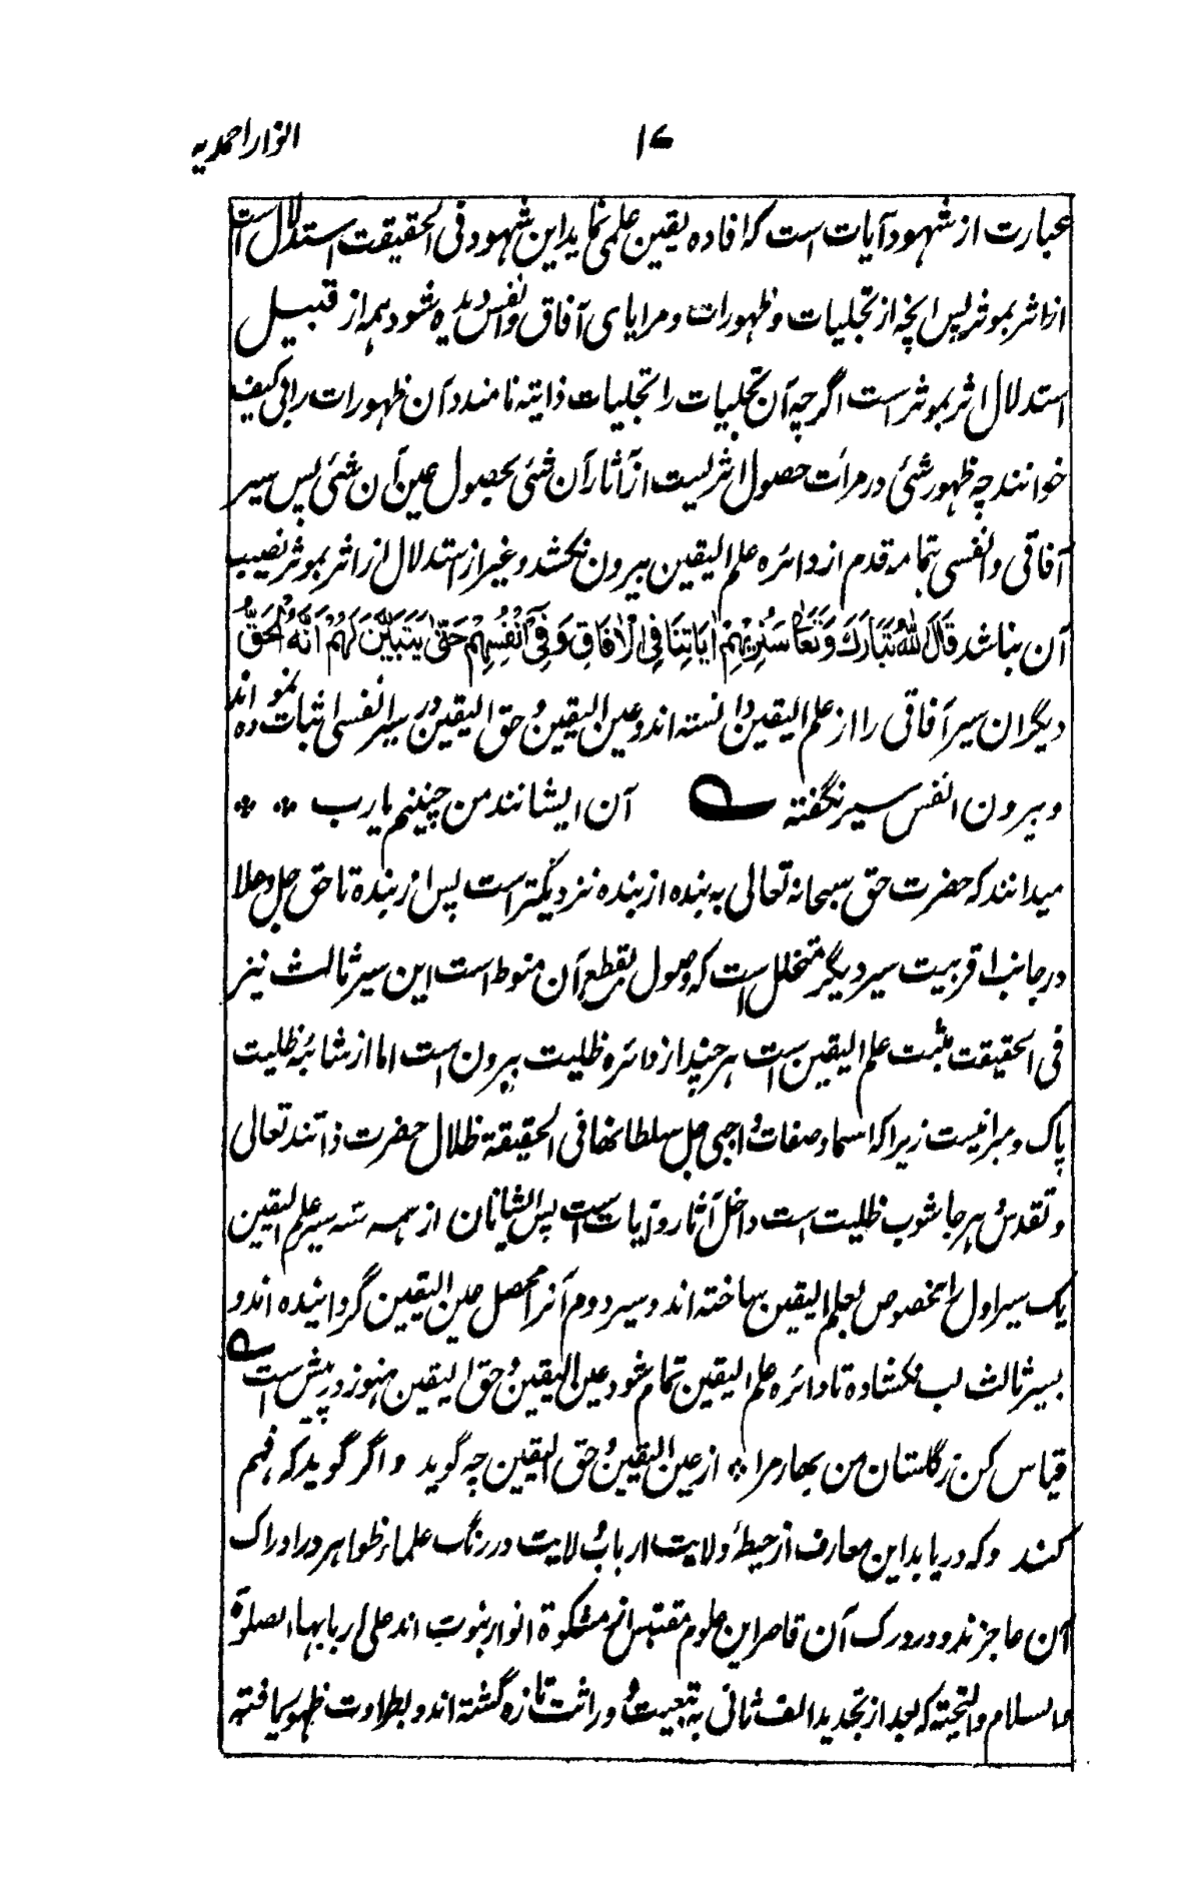 ۱۷ انوار احمدیه
عبارت از شهود آیات است که افاده یقین علمی نماید این شهود فی الحقیقت استدلال است
از اثر بموثر پس آنچه از تجلیات و ظهورات و مرایای آفاق و انفس دیده شود همه از قبیل
استدلال اثر بموثر است اگر چه آن تجلیات را تجلیات ذاتیه نامند و آن ظهورات را بی کیف
خوانند چه ظهور شئی در مرآت حصول اثریست از آثار آن شئی نه حصول عین آن شئی پس سیر
آفاقی و انفسی بتمامه قدم از دائره علم الیقین بیرون نکشد و غیر از استدلال از اثر بموثر نصیب
آن نباشد قَالَ اللّٰهُ تَبَارَكَ وَتَعَالٰی سَنُرِيْهِمْ اٰيَاتِنَا فِي الْاٰفَاقِ وَفِيْ اَنْفُسِهِمْ حَتّٰى يَتَبَيَّنَ لَهُمْ اَنَّهُ الْحَقُّ
دیگران سیر آفاقی را از علم الیقین دانسته اند و عین الیقین و حق الیقین در سیر انفسی اثبات نموده اند
و بیرون انفس سیر نگفته ؎ آن ایشانند من چنینم یارب ❖ ❖
میدانند که حضرت حق سبحانه تعالی به بنده از بنده نزدیکتر است پس از بنده تا حق جل و علا
در جانب اقربیت سیر دیگر متخلل است که وصول بقطع آن منوط است این سیر ثالث نیز
فی الحقیقت مثبت علم الیقین است هر چند از دائره ظلیت بیرون است اما از شائبهٔ ظلیت
پاک و مبرا نیست زیرا که اسما و صفات واجبی جل سلطانها فی الحقیقة ظلال حضرت ذاتند تعالی
و تقدس و هر جا شوب ظلیت است داخل آثار و آیات است پس ایشانان از همه سه سیر علم الیقین
یک سیر اول را مخصوص بعلم الیقین ساخته اند و سیر دوم آنرا محصل عین الیقین گردانیده اند و
بسیر ثالث لب نکشاده تا دائره علم الیقین تمام شود عین الیقین و حق الیقین هنوز در پیش است ؎
قیاس کن ز گلستان من بهار مرا ❖ از عین الیقین و حق الیقین چه گوید و اگر گوید که فهم
کند و که دریابد این معارف از حیطهٔ ولایت ارباب ولایت در رنگ علماء ظواهر در ادراک
آن عاجزند و در درک آن قاصر این علوم مقتبس از مشکوة انوار نبوت اند علی اربابها الصلوة
والسلام والتحیته که بعد از تجدید الف ثانی به تبعیت و وراثت تازه گشته اند و بطراوت ظهور یافته